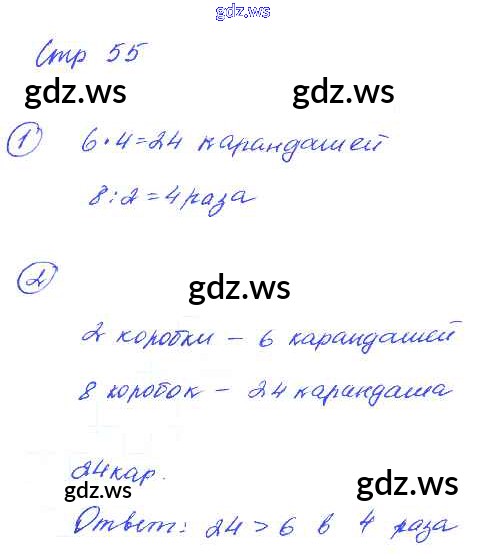 gdz.ws
Стр 55
gdz.ws gdz.ws
1 6·4=24 карандашей
8:2=4 раза
2
gdz.ws
2 коробки – 6 карандашей
8 коробок – 24 карандаша
24 кар.
gdz.ws gdz.ws
Ответ: 24 > 6 в 4 раза